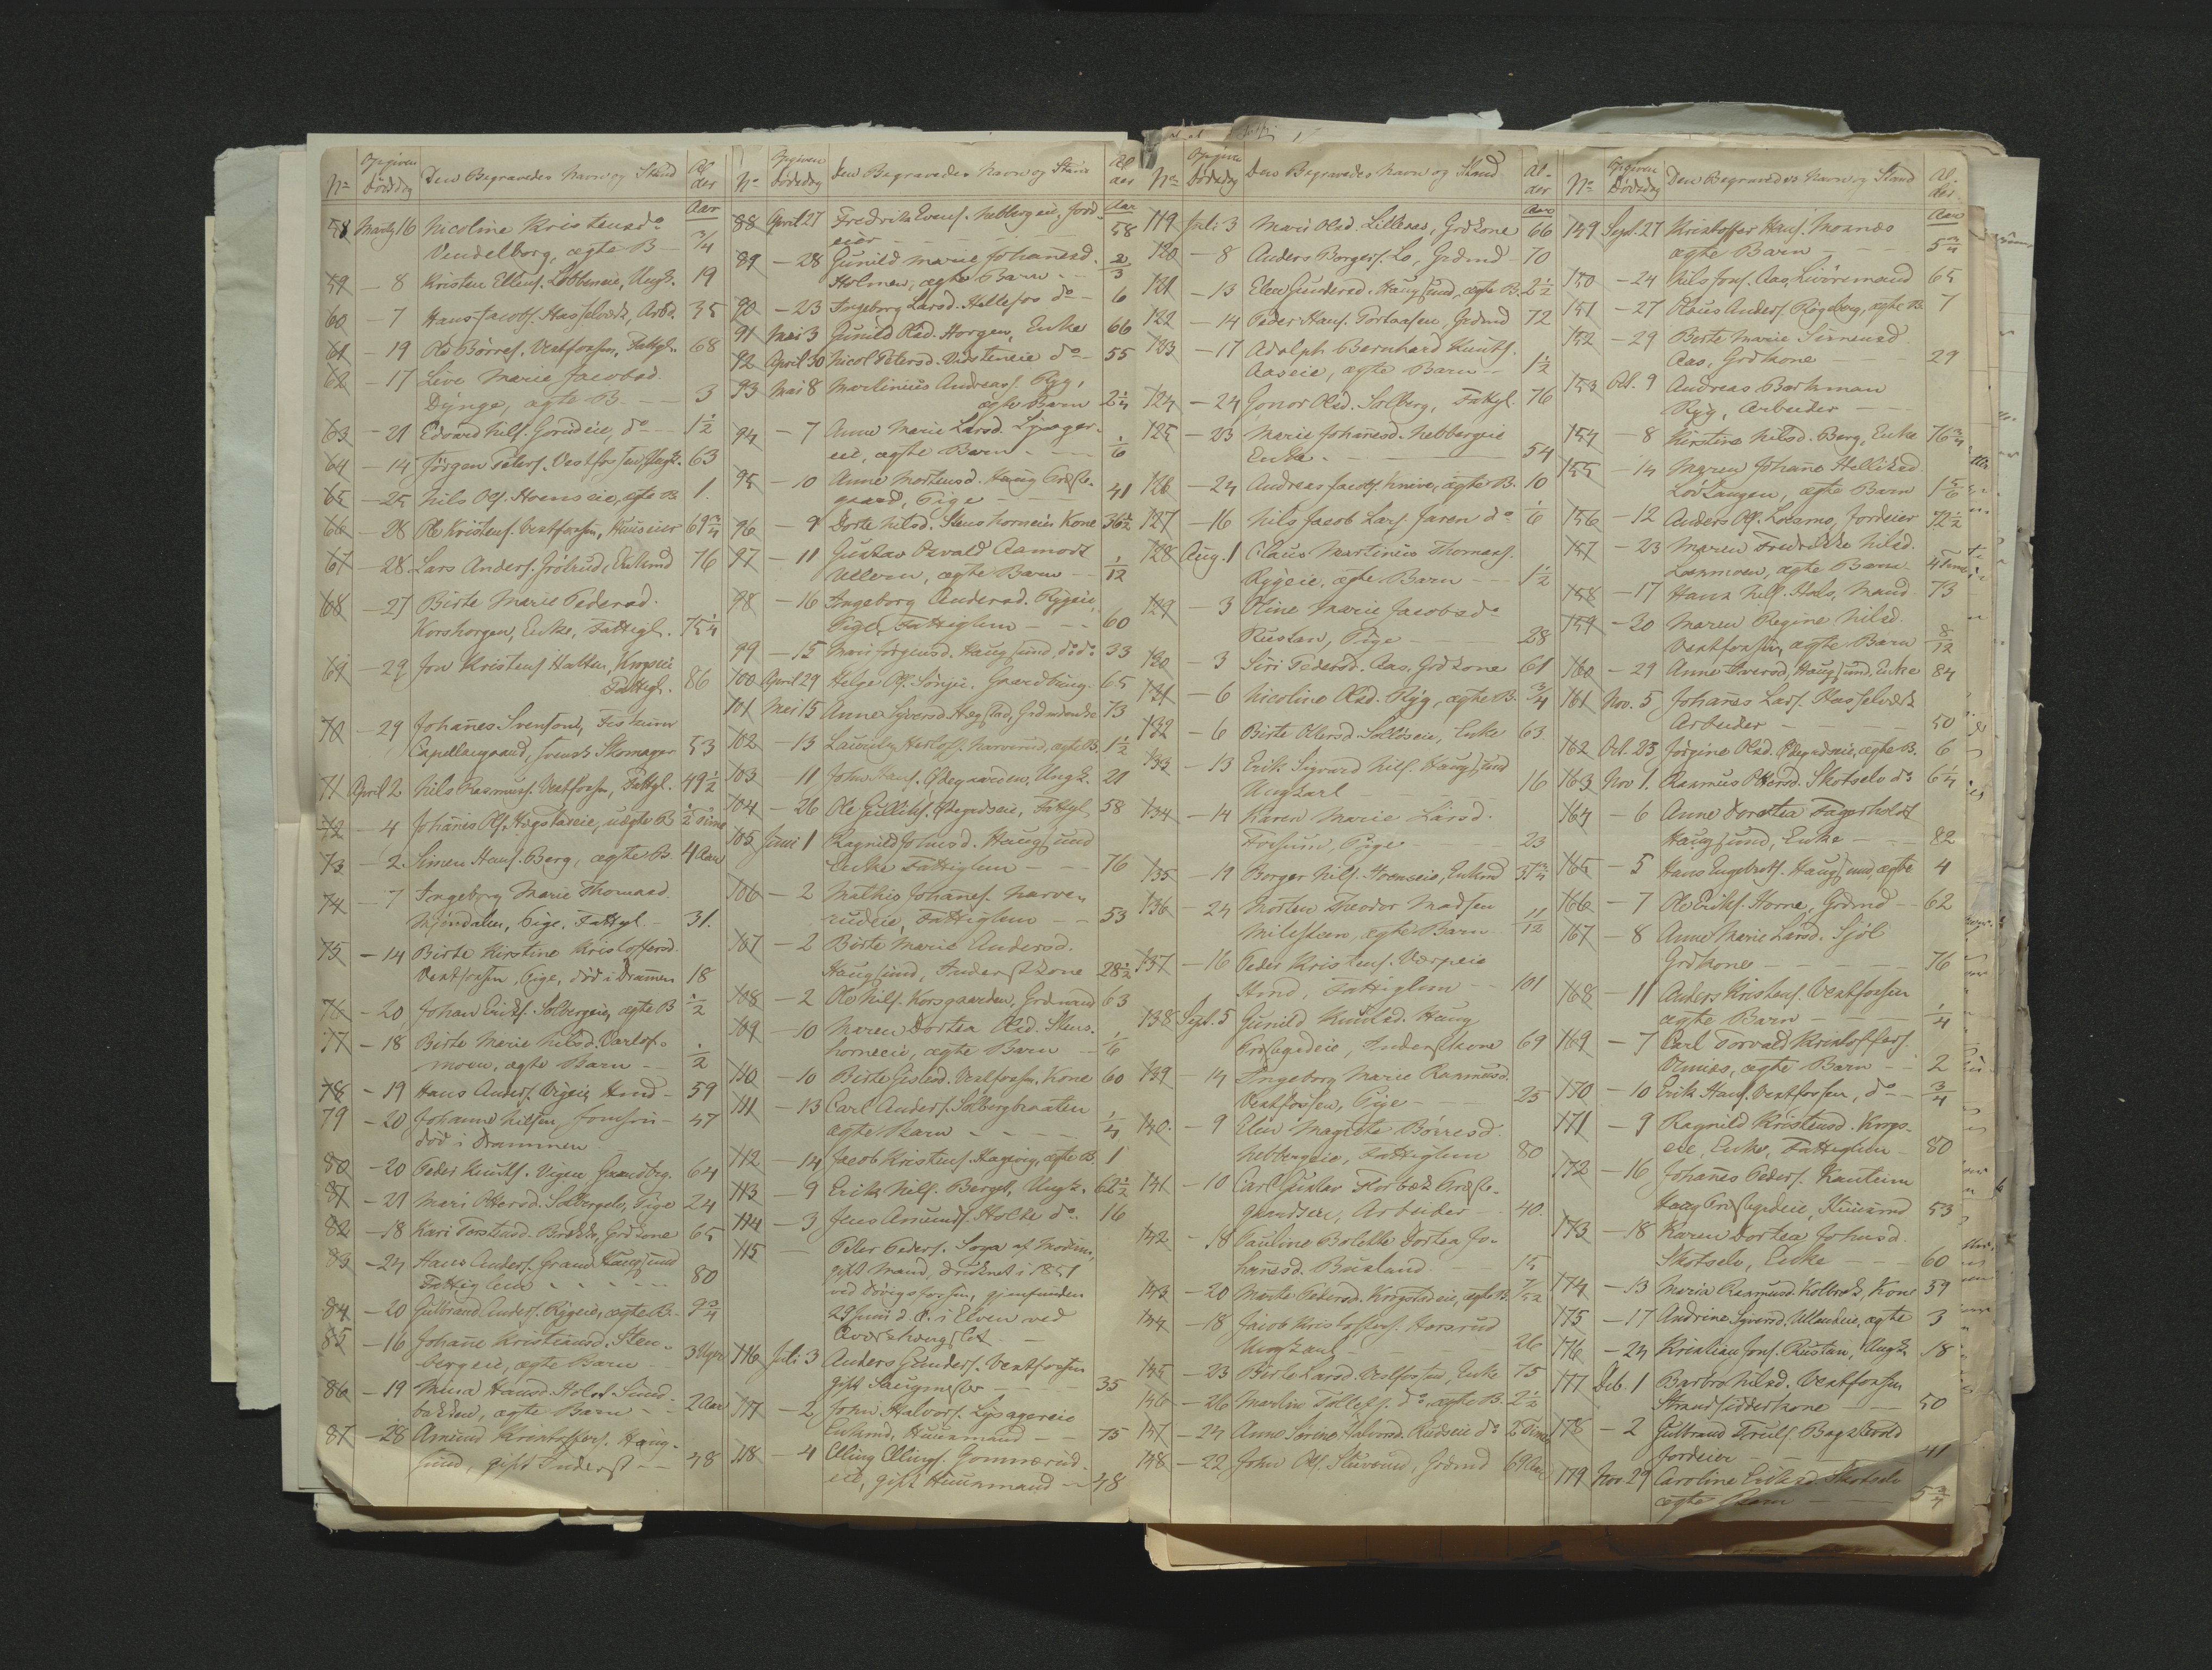 No Opgiven Dödsdag Den Begravedes Navn og Stand Alder
Aar
58 Marts 16 Nicoline Kristensd.
Vendelborg, ægte B. — 3/4
59 – 8 Kristen Ellens. Ungk. 19
60 – 7 Hans Jacobs. Hasselbæk, Arbd. 35
61 – 19 Ole Börres. Vestfossen, Fattigl. 68
62 – 17 Live Marie Jacobsd.
Dynge, ægte B. — 3
63 – 21 Edvard Nils. do 1 1/2
64 – 14 Jörgen Peters. Vestfossen, Ungk. 63
65 – 25 Nils Ols. Hoenseie, ægte B. 1.
66 – 28 Ole Kristens. Vestfossen, Huuseier 69 3/4
67 – 28 Lars Anders. Enkmd 76
68 – 27 Birte Marie Pedersd.
Korshorgen, Enke, Fattigl. 75 1/4
69 – 29 Jon Kristens. Kropseie
Fattigl. 86
70 – 29 Johanes Svensons, Fiskum
Capellangaard, svensk Skomager 53
71 April 2 Nils Rasmuss. Vestfossen, Fattigl. 49 1/2
72 – 4 Johanes Ols. uægte B. 1/2 Time
73 – 2. Simen Hans. Berg, ægte B. 4 Aar
74 – 7 Ingeborg Marie Thomasd.
Mjöndalen, Pige, Fattigl. – 31.
75 – 14 Birte Kirstine Kristoffersd.
Vestfossen, Pige, död i Drammen 18
76 – 20 Johan Eriks. Solbergeie, ægte B 1/2
77 – 18 Birte Marie Nilsd.
moen, ægte Barn — 1/2
78 – 19 Hans Anders. Hmd – 59
79 – 20 Johanne Nilsen – 47
död i Drammen
80 – 20 Peder Knuts. Gaardbrg. 64
81 – 21 Mari Ottersd. Solbergelv, Pige 24
82 – 18 Kari Torstensd. Grdkone 65
83 – 24 Hans Anders. Haugsund
Fattiglem – – – 80
84 – 20 Gulbrand Anders. Rygeie, ægte B. 9 3/4
85 – 16 Johane Kristiansd. Sten-
bergeie, ægte Barn – 3 Uger
86 – 19 Mina Hansd. Sund-
bakken, ægte Barn – 2 Aar
87 – 28 Amund Kristoffers. Haug-
sund, gift Inderst – – 48
No Opgiven Dödsdag Den Begravedes Navn og Stand Alder
Aar
88 April 27 Fredrik Evens. Nebbergeie, Jord-
eier – – – 58
89 – 28 Gunild Marie Johanesd.
Holmen, ægte Barn – 2/3
90 – 23 Ingeborg Larsd. Hellefos do – 6
91 Mai 3 Gunild Olsd. Horgen, Enke 66
92 April 30 Nicol Petersd. do – 55
93 Mai 8 Martinius Andreass. Ryg,
ægte Barn 2 1/4
94 – 7 Anne Marie Larsd. Lysager-
eie, ægte Barn – – 1/6
95 – 10 Anne Mortensd. Haug Præste-
gaard, Pige – – 41
96 – 9 Dorte Nilsd. Stenshorneie Kone 36 1/2
97 – 11 Gustav Osvald Aamodt
Ullern, ægte Barn – – 1/12
98 – 16 Ingeborg Andersd. Rygeie,
Pige, Fattiglem – – 60
99 – 15 Mari Jörgensd. Haugsund, do do 33
100 April 29 Helge Ols. Gaardbrug. 65
101 Mai 15 Anne Syversd. Grdmdenke 73
102 – 13 Laurits Herlofs. Narverud, ægte B. 1 1/2
103 – 11 John Hans. Ödegaarden, Ungk. 21
104 – 26 Ole Gulliks. Ödegrdseie, Fattigl 58
105 Juni 1 Ragnild Johnsd. Haugsund
Enke Fattiglem – – 76
106 – 2 Mathis Johanes. Narve-
rudeie, Fattiglem – – 53
107 – 2 Birte Marie Andersd.
Haugsund, Inderstkone 28 1/2
108 – 2 Ole Nils. Korsgaarden, Grdmand 63
109 – 10 Maren Dortea Olsd. Stens-
horneeie, ægte Barn – 1/6
110 – 10 Birte Gislesd. Vestfossen, Kone 60
111 – 13 Carl Anders. Solbergbraaten
ægte Barn – – – 1/4
112 – 14 Jacob Kristens. ægte B. 1
113 – 9 Erik Nils. Berget, Ungk. 62 1/2
114 – 3 Jens Amunds. Holte do. 16
115 – Peter Peders. af Modum,
gift Mand, druknet i 1851
ved Dövigsfossen, gjenfunden
29 Juni d. A. i Elven ved
116 Juli 3 Anders Gunders. Vestfossen
gift Saugmester – – 35
117 – 2 John Halvors. Lysagereie
Enkmd, Huusmand – – 75
118 – 4 Elling Ellings. Gommerud-
eie, gift Huusmand – 48
No Opgiven Dödsdag Den Begravedes Navn og Stand Alder
Aar
119 Juli 3 Mari Olsd. Lilleaas, Grdkone 66
120 – 8 Anders Borgers. Lo, Grdmd – 70
121 – 13 Elen Gundersd. Haugsund, ægte B. 2 1/2
122 – 14 Peder Hans. Grdmd 72
123 – 17 Adolph Bernhard Knuts.
Aaseie, ægte Barn – 1 1/2
124 – 24 Gonor Olsd. Solberg, Fattigl. 76
125 – 23 Marie Johanesd. Nebbergeie
Enke. – 54
126 – 24 Andreas Jacobs. Knive, ægte B. 10
127 – 16 Nils Jacob Lars. Jaren do 1/6
128 Aug. 1 Claus Martinius Thomass.
Rygeie, ægte Barn – – 1 1/2
129 – 3 Oline Marie Jacobsd.
Rustan, Pige – 28
130 – 3 Siri Pedersd. Aas, Grdkone 61
131 – 6 Nicoline Olsd. Ryg, ægte B. 3/4
132 – 6 Birte Ellersd. Enke 63.
133 – 13 Erik Sigvard Nils. Haugsund
Ungkarl – 16
134 – 14 Karen Marie Larsd.
Pige – 23
135 – 19 Borger Nils. Hoenseie, Enkmd 31 3/4
136 – 24 Morten Theodor Madsen
ægte Barn 11/12
137 – 16 Peder Kristens.
Hmd, Fattiglem – – 101
138 Sept. 5 Gunild Knutsd. Haug
Præstegrdeie, Inderstkone 69
139 – 14 Ingeborg Marie Rasmusd.
Vestfossen, Pige – 25
140. – 9 Elen Magrete Börresd.
Nebbergeie, Fattiglem 80
141 – 10 Carl Gustav Præste-
gaardseie, Arbeider – 40
142 – 18 Pauline Bolette Dortea Jo-
hanesd. Buxlund – 15
143 – 20 Marte Pedersd. ægte B. 7/52
144 – 18 Jacob Kristoffers. Horsrud
Ungkarl – 26
145 – 23 Birte Larsd. Vestfossen, Enke 75
146 – 26 Martin Tollefs. do, ægte B. 2 1/2
147 – 24 Anne Sörine Halvorsd. Rudseie do 2 Timer
148 – 22 John Ols. Grdmd 69 Aar
No Opgiven Dödsdag Den Begravedes Navn og Stand Alder
Aar
149 Sept. 27 Kristoffer Hans. Moenes
ægte Barn – 5 3/4
150 – 24 Nils Jons. Aas, Livöremand 65
151 – 27 Olaus Anders. Rögeberg, ægte B. 7
152 – 29 Birte Marie Simensd
Aas, Grdkone – 29
153 Oct. 9 Andreas Borkman
Ryg, Arbeider –
154 – 8 Kirstine Nilsd. Berg, Enke 76 3/4
155 – 14 Maren Johane Helliksd.
ægte Barn 1 5/6
156 – 12 Anders Ols. Loesmo, Jordeier 72 1/2
157 – 23 Maren Fredrikke Nilsd.
Loesmoen, ægte Barn 4 Timer
158 – 17 Hans Nils. Hals, Mand 73
159 – 20 Maren Regine Nilsd.
Vestfossen, ægte Barn 8/12
160 – 29 Anne Iversd, Haugsund, Enke 84
161 Nov. 5 Johanes Lars. Hasselbæk
Arbeider – 50
162 Oct. 25 Jörgine Olsd. Ödegrdseie, ægte B. 6
163 Nov 1. Rasmus Skotselv do 6 1/4
164 – 6 Anne Dorothea Fagerholdt
Haugsund, Enke – – 82
165 – 5 Hans Engebrets. Haugsund, ægte 4
166 – 7 Ole Eriks. Horne, Grdmd – 62
167 – 8 Anne Marie Larsd. Sjöl
Grdkone – 76
168 – 11 Anders Kristens. Vestfossen
ægte Barn – 1/4
169 – 7 Carl Torvald Kristoffers.
ægte Barn – – 2
170 – 10 Erik Hans. Vestfossen, do – 3/4
171 – 9 Ragnild Kristensd. Krops-
eie, Enke, Fattiglem – 80
172 – 16 Johanes Peders.
Haug Præstegrdeie, Huusmd 53
173 – 18 Karen Dortea Johnsd.
Skotselv, Enke – – 60
174 – 13 Maria Rasmusd. Kolbræk, Kone 59
175 – 17 Andrine Syversd. ægte 3
176 – 24 Kristian Jons. Rustan, Ungk. 18
177 Deb. 1 Barbro Nilsd. Vestfossen
Strandsidderkone – 50
178 – 2 Gulbrand Truls.
Jordeier – 41
179 Nov 29 Caroline Eriksd. Skotselv
ægte Barn – 5 3/4